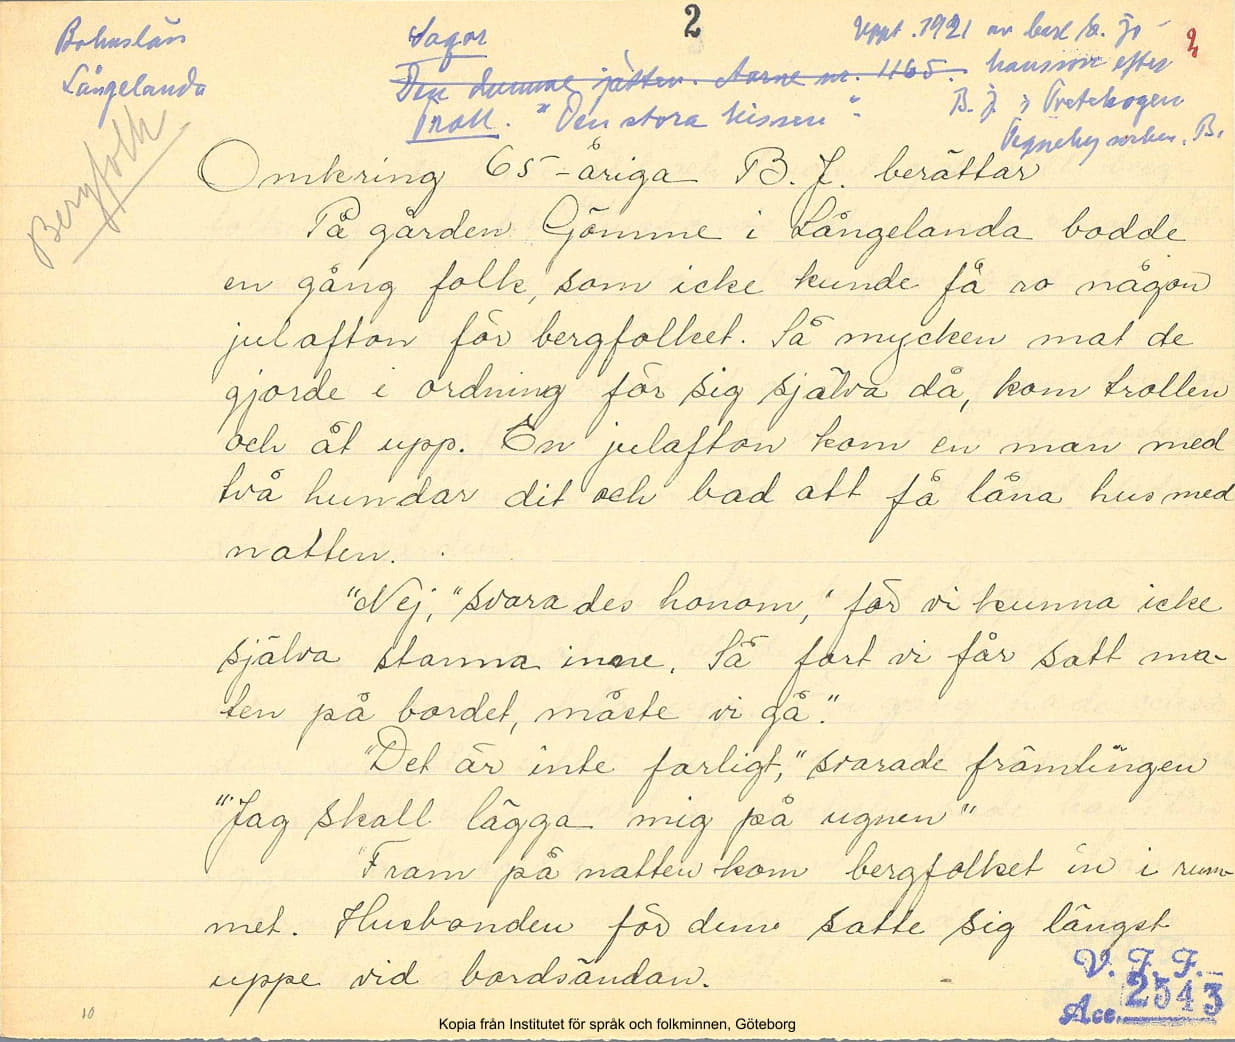 2
Bohuslän
Långelanda
Sagor
Den dumme jätten. Aarne nr. 1165.
Troll. "Den stora kissen".
Uppt. 1921 av
hansson efter
B. J.
2
Bergfolk
Omkring 65-åriga B. J. berättar
På gården Gömme i Långelanda bodde
en gång folk, som icke kunde få ro någon
julafton för bergfolket. Så mycken mat de
gjorde i ordning för sig själva då, kom trollen
och åt upp. En julafton kom en man med
två hundar dit och bad att få låna hus med
natten.
"Nej," svarades honom, "för vi kunna icke
själva stanna inne. Så fort vi får satt ma-
ten på bordet, måste vi gå."
"Det är inte farligt," svarade främlingen
"Jag skall lägga mig på ugnen"
Fram på natten kom bergfolket in i rum-
met. Husbonden för dem satte sig längst
uppe vid bordsändan.
V. F. F.
Acc. 2543
10
Kopia från Institutet för språk och folkminnen, Göteborg